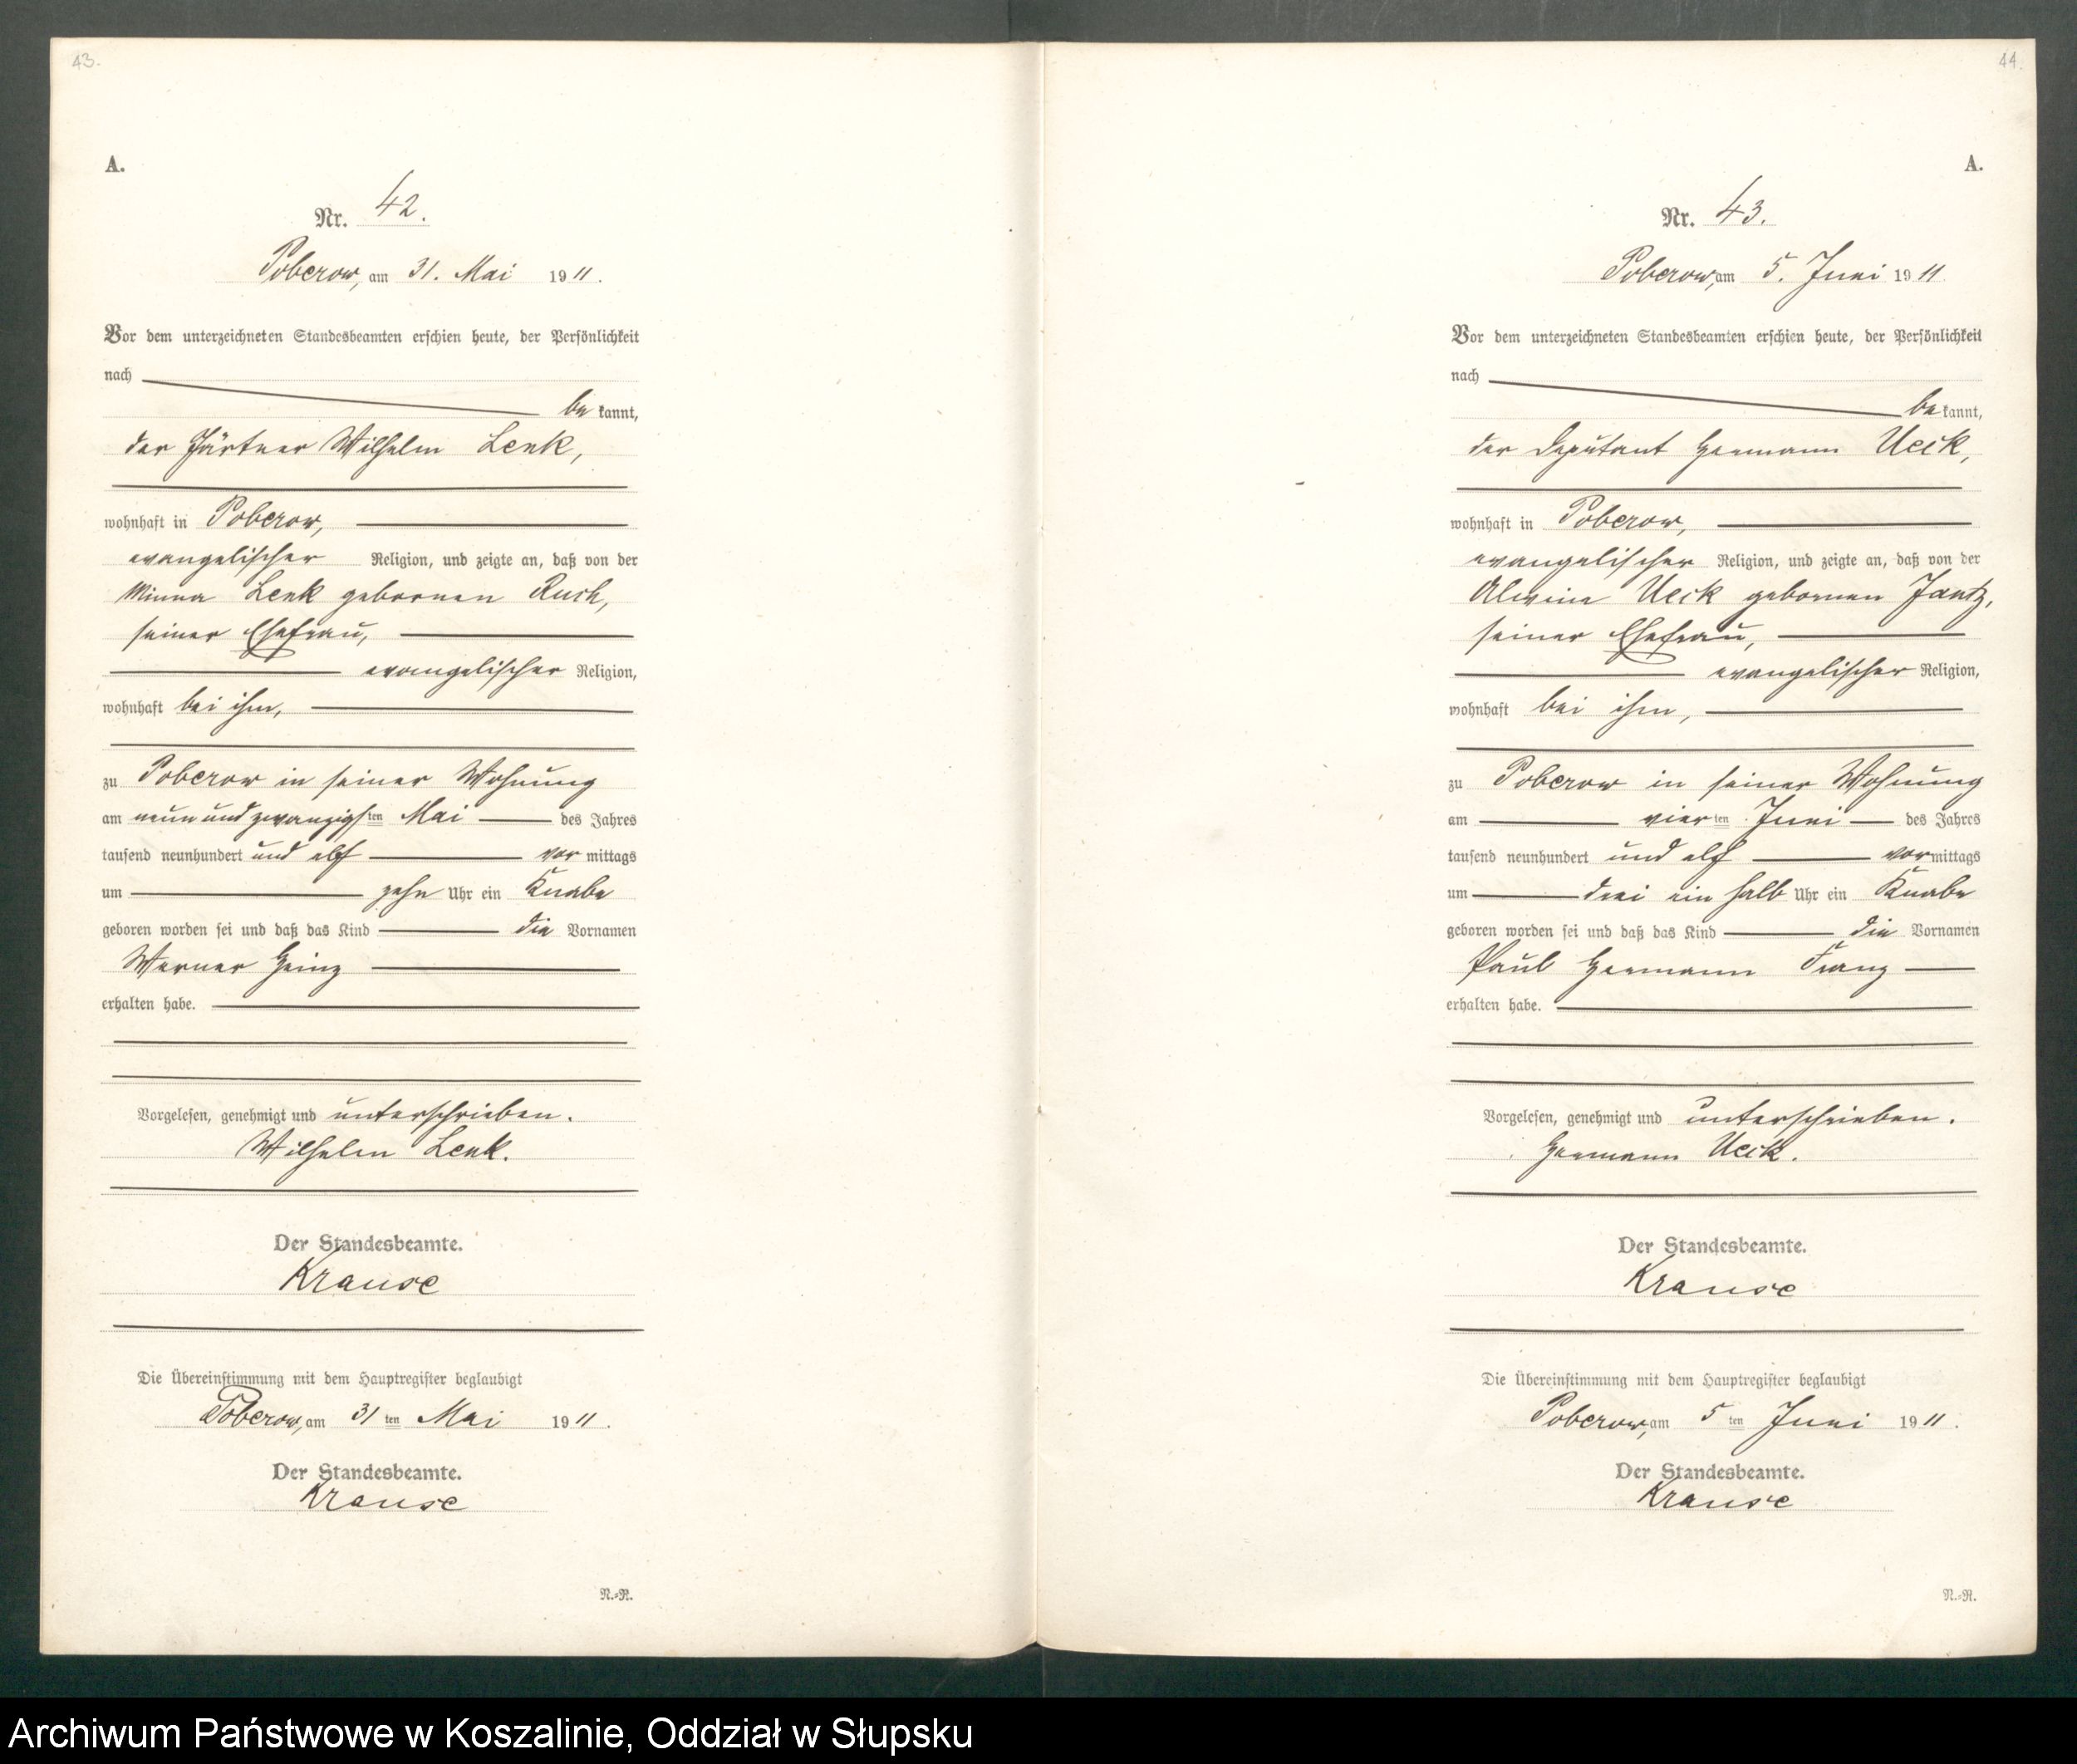 43.
A.
Nr. 42.
Poberow, am 31. Mai 1911.
Vor dem unterzeichneten Standesbeamten erschien heute, der Persönlichkeit
nach
bekannt,
der Gärtner Wilhelm Lenk,
wohnhaft in Poberow,
evangelischer Religion, und zeigte an, daß von der
Minna Lenk gebornen Ruch,
seiner Ehefrau,
evangelischer Religion,
wohnhaft bei ihm,
zu Poberow in seiner Wohnung
am neun und zwanzigsten Mai des Jahres
tausend neunhundert und elf vormittags
um zehn Uhr ein Knabe
geboren worden sei und daß das Kind die Vornamen
Werner Heinz
erhalten habe.
Vorgelesen, genehmigt und unterschrieben.
Wilhelm Lenk.
Der Standesbeamte.
Krause
Die Übereinstimmung mit dem Hauptregister beglaubigt
Poberow, am 31ten Mai 1911.
Der Standesbeamte.
Krause
N.=R.
44.
A.
Nr. 43.
Poberow, am 5. Juni 1911
Vor dem unterzeichneten Standesbeamten erschien heute, der Persönlichkeit
nach
bekannt,
der Deputant Hermann Ueck,
wohnhaft in Poberow,
evangelischer Religion, und zeigte an, daß von der
Alwine Ueck gebornen Jantz,
seiner Ehefrau,
evangelischer Religion,
wohnhaft bei ihm,
zu Poberow in seiner Wohnung
am vierten Juni des Jahres
tausend neunhundert und elf vormittags
um drei ein halb Uhr ein Knabe
geboren worden sei und daß das Kind die Vornamen
Paul Hermann Franz
erhalten habe.
Vorgelesen, genehmigt und unterschrieben.
Hermann Ueck.
Der Standesbeamte.
Krause
Die Übereinstimmung mit dem Hauptregister beglaubigt
Poberow, am 5ten Juni 1911.
Der Standesbeamte.
Krause
N.=R.
Archiwum Państwowe w Koszalinie, Oddział w Słupsku